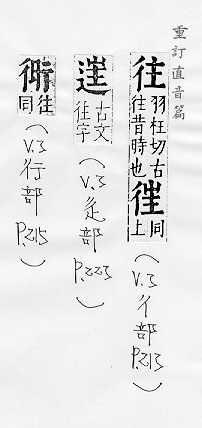 重訂直音篇
往羽枉切古往昔時也徃同上(V.3彳部P.213)
古文往字(V.3辵部P.223)
往同(V.3行部P.215)